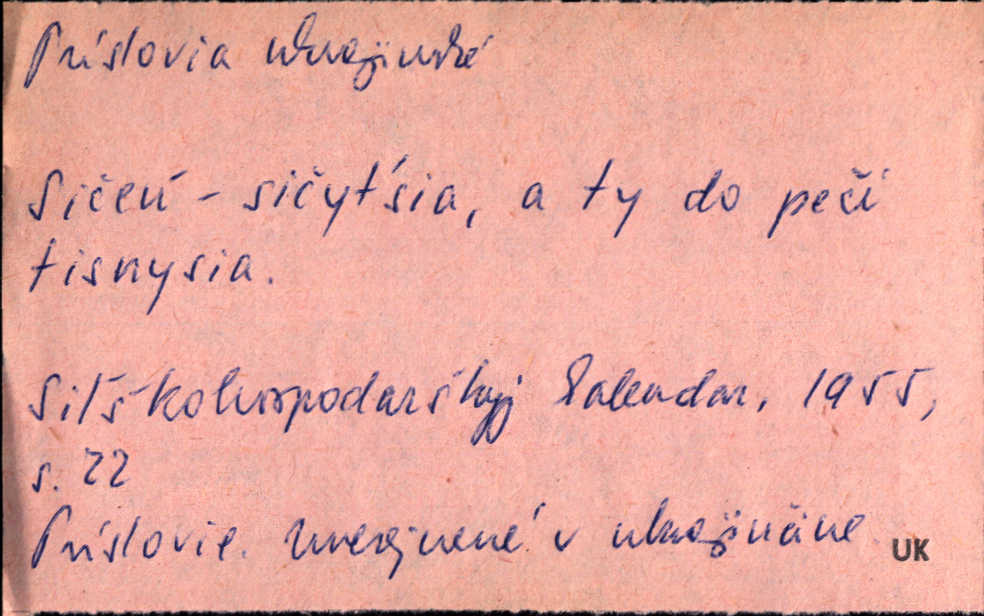 Príslovia ukrajinské
Sičeń - sičyťsia, a ty do peči
tisnysia.
Siľśkohospodarśkyj kalendar, 1955,
s. 22
Príslovie. uverejnené v ukrajinčine UK